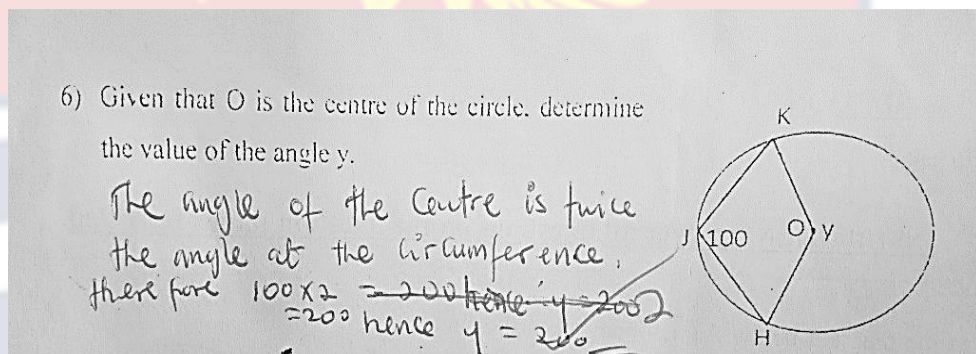 6) Given that O is the centre of the circle. determine
the value of the angle y.
The angle of the Centre is twice
the angle at the circumference,
there fore 100x2 = 200 hence y = 200
=200 hence y = 200
K
J 100 O y
H